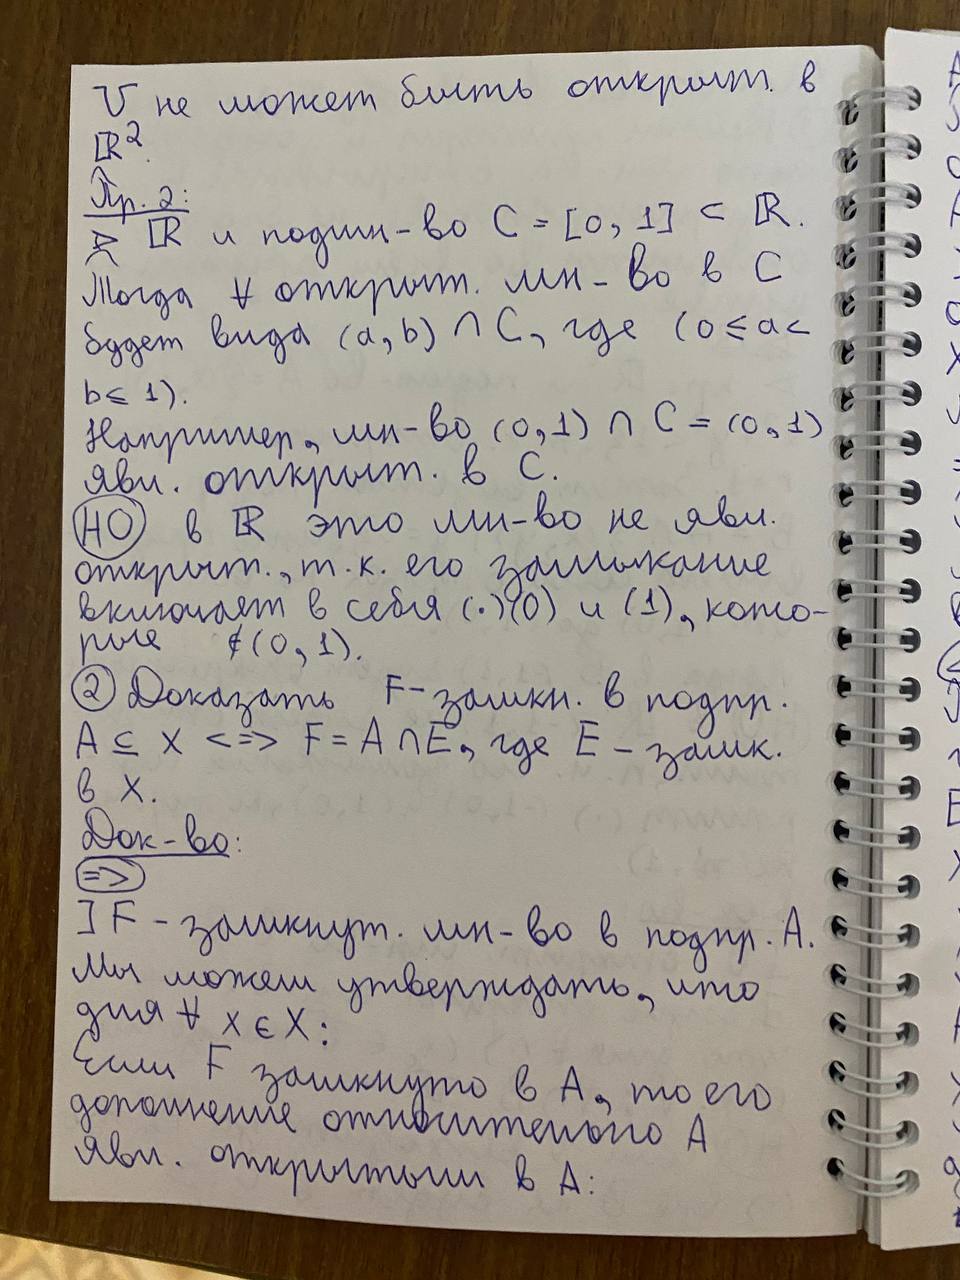 U не может быть открыт. в
ℝ².
Пр. 2:
ℝ и подмн-во C = [0, 1] ⊂ ℝ.
Тогда ∀ открыт. мн-во в C
будет вида (a, b) ∩ C, где (0 ≤ a <
b ≤ 1).
Например, мн-во (0, 1) ∩ C = (0, 1)
явл. открыт. в C.
НО в ℝ это мн-во не явл.
открыт., т.к. его замыкание
включает в себя (·)(0) и (1), кото-
рые ∉ (0, 1).
② Доказать F - замкн. в подпр.
A ⊆ X <=> F = A ∩ E, где E - замк.
в X.
Док-во:
=>
] F - замкнут. мн-во в подпр. A.
Мы можем утверждать, что
для ∀ x ∈ X:
Если F замкнуто в A, то его
дополнение относительного A
явл. открытым в A: